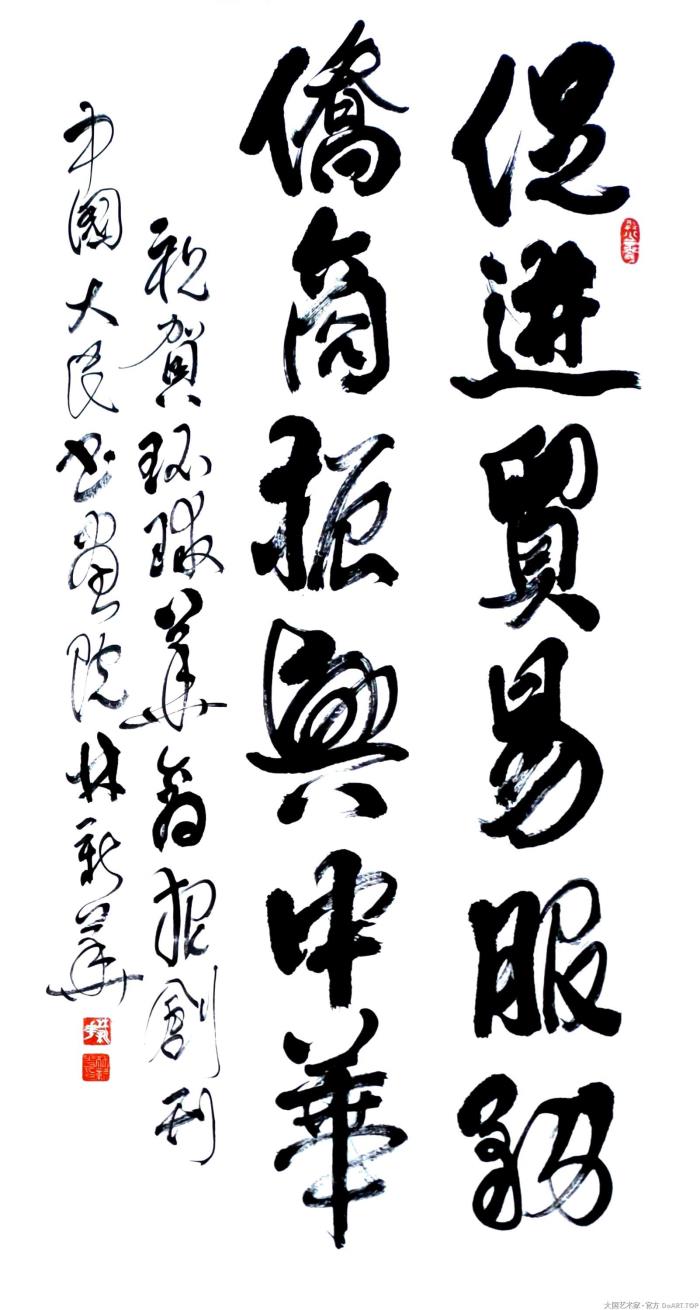 促進貿易服務
僑商振興中華
祝賀环球華商报創刊
中國大民书畫院林新華
大国艺术家·官方 DoART.TOP